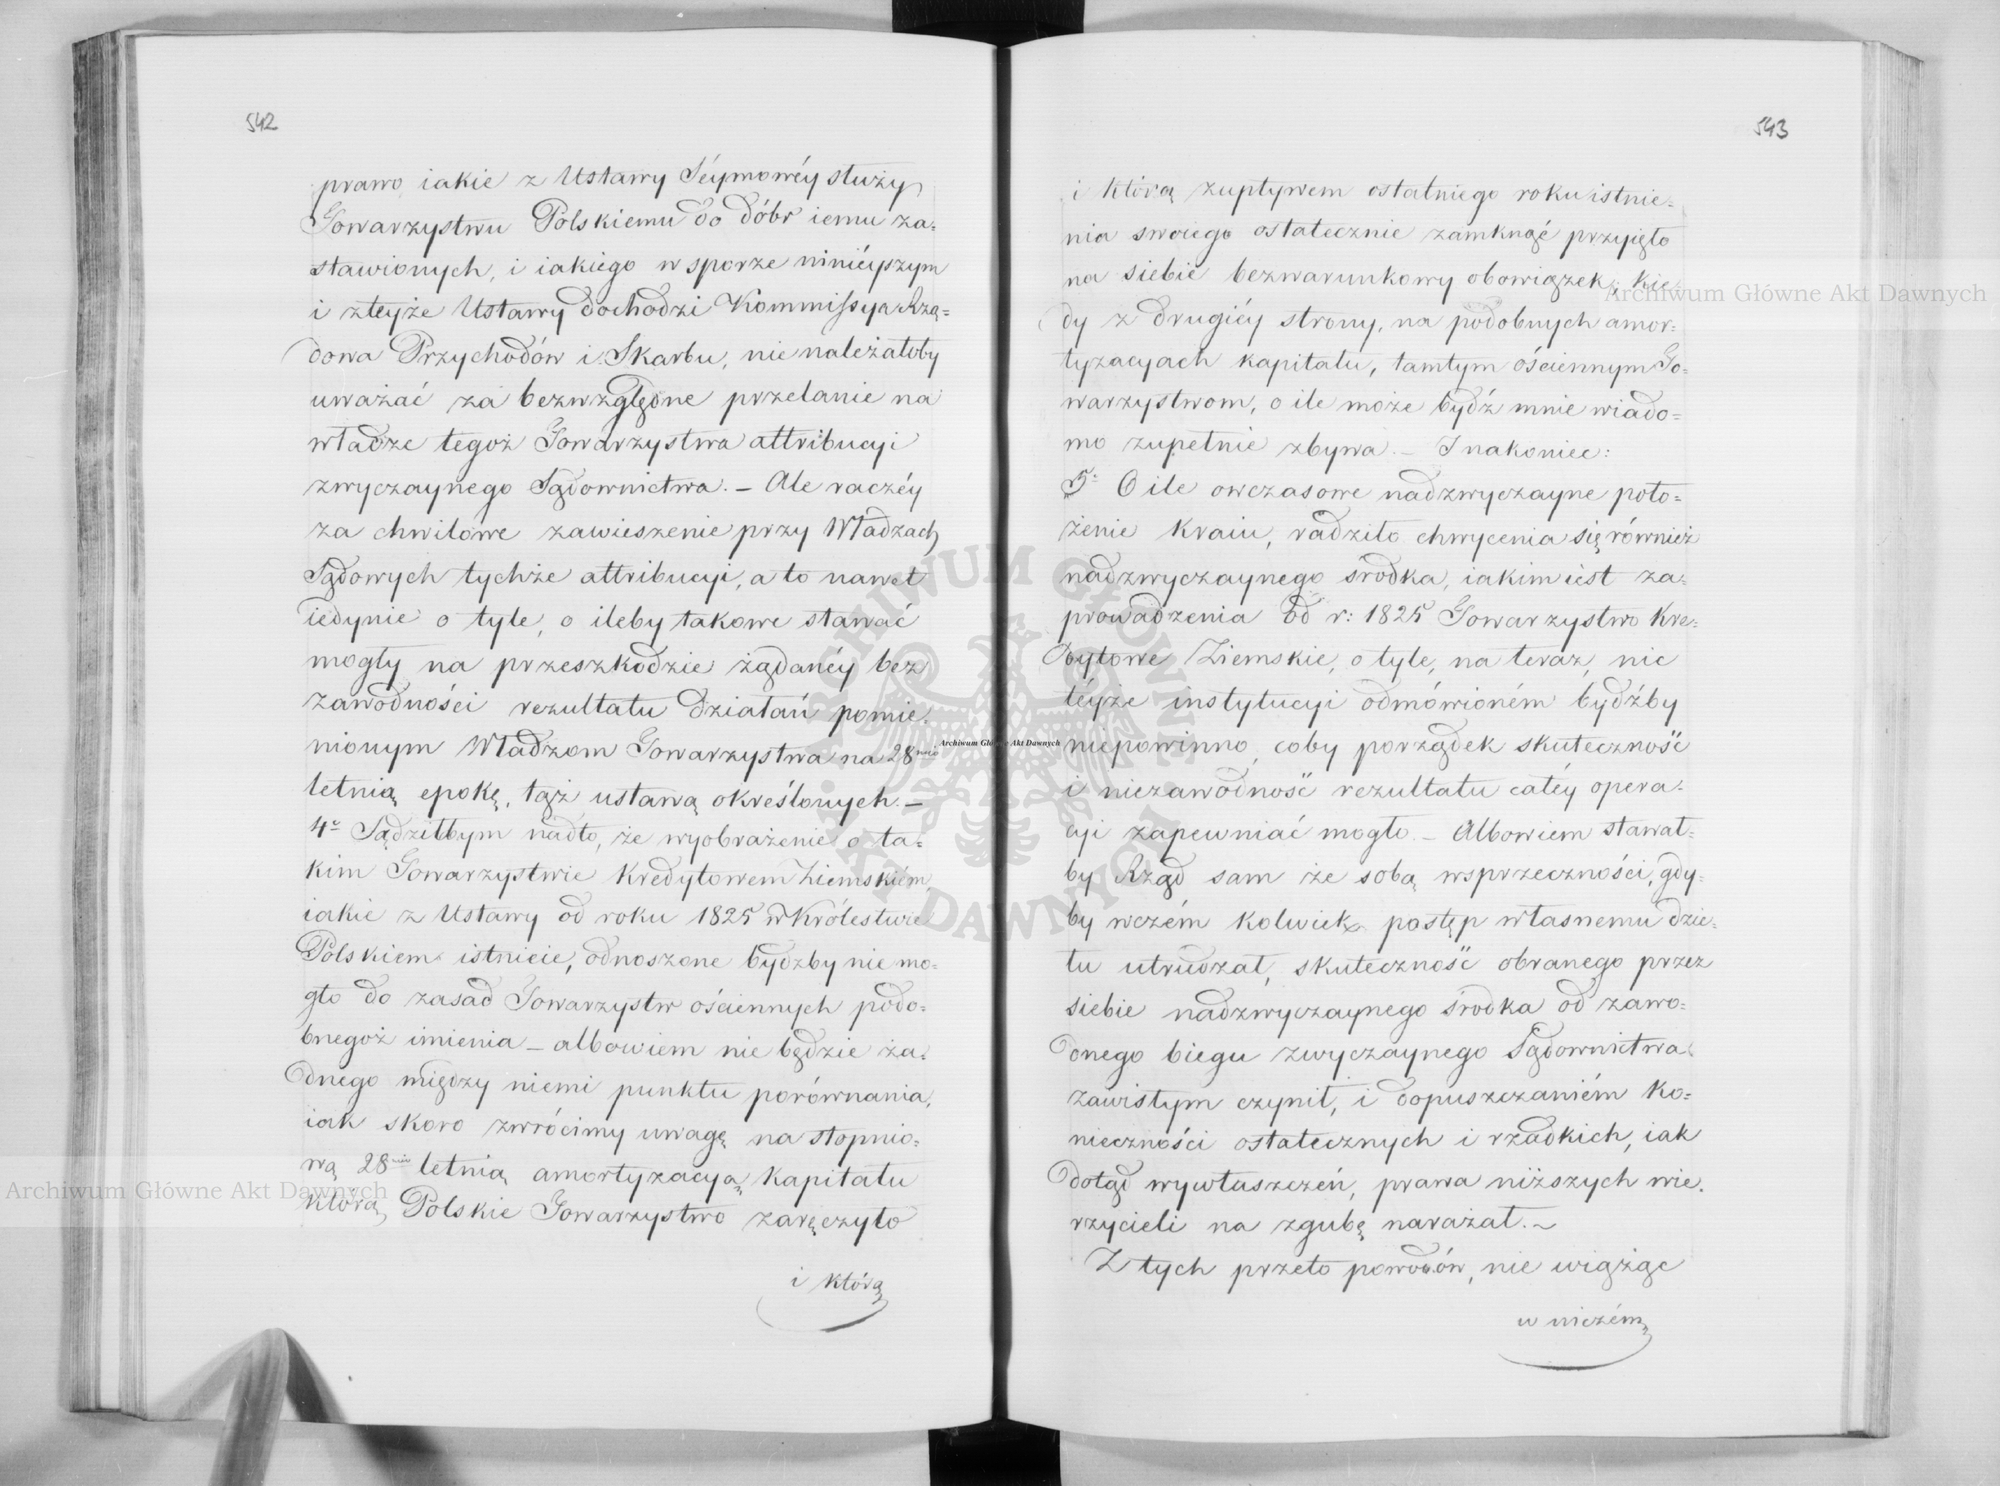 542
prawo, iakie z Ustawy Séymowéy służy
Towarzystwu Polskiemu do dóbr iemu za-
stawionych, i iakiego w sporze ninieyszym
i z teyże Ustawy dochodzi Kommissya Rzą-
dowa Przychodów i Skarbu, nie należałoby
uważać za bezwzględne przelanie na
władze tegoż Towarzystwa attribucyi
zwyczaynego Sądownictwa. – Ale raczéy
za chwilowe zawieszenie przy Władzach
Sądowych tychże attribucyi, a to nawet
iedynie o tyle, o ileby takowe stawać
mogły na przeszkodzie żądanéy bez
zawodności rezultatu działań pomie-
nionym Władzom Towarzystwa na 28mio
letnią epokę, tąż ustawą określonych. –
4e Sądziłbym nadto, że wyobrażenie o ta-
kim Towarzystwie Kredytowem Ziemskiém,
iakie z Ustawy od roku 1825 w Królestwie
Polskiem istnieie, odnoszone bydźby nie mo-
gło do zasad Towarzystw ościennych podo-
bnegoż imienia – albowiem nie będzie ża-
dnego między niemi punktu porównania,
iak skoro zwrócimy uwagę na stopnio-
wą 28mio letnią amortyzacyą kapitału
którą Polskie Towarzystwo zaręczyło
i którą
543
i którą zupływem ostatniego roku istnie-
nia swoiego ostatecznie zamknąć przyięło
na siebie bezwarunkowy obowiązek, kie-
dy z drugiéy strony, na podobnych amor-
tyzacyach kapitału, tamtym ościennym To-
warzystwom, o ile może bydź mnie wiado-
mo zupełnie zbywa. – Inakoniec:
5e O ile owczasowe nadzwyczayne poło-
żenie Kraiu, radziło chwycenia się również
nadzwyczaynego srodka, iakim iest za-
prowadzenia od r: 1825 Towarzystwo Kre-
dytowe Ziemskie, o tyle, na teraz, nic
téyże instytucyi odmówioném bydźby
niepowinno, coby porządek skuteczność
i niezawodność rezultatu całéy opera-
cyi zapewniać mogło. – Albowiem stawał-
by Rząd sam że sobą wsprzeczności, gdy-
by wczém kolwiek postęp własnemu dzie-
łu utrudzał, skuteczność obranego przez
siebie nadzwyczaynego środka od zawo-
dnego biegu zwyczaynego Sądownictwa
zawisłym czynił, i dopuszczaniém ko-
nieczności ostatecznych i rzadkich, iak
dotąd wywłaszczeń, prawa niższych wie-
rzycieli na zgubę narażał. ~
Z tych przeto powodów, nie wiążąc
w niczém
Archiwum Główne Akt Dawnych
Archiwum Główne Akt Dawnych
Archiwum Główne Akt Dawnych
ARCHIWUM GŁÓWNE AKT DAWNYCH